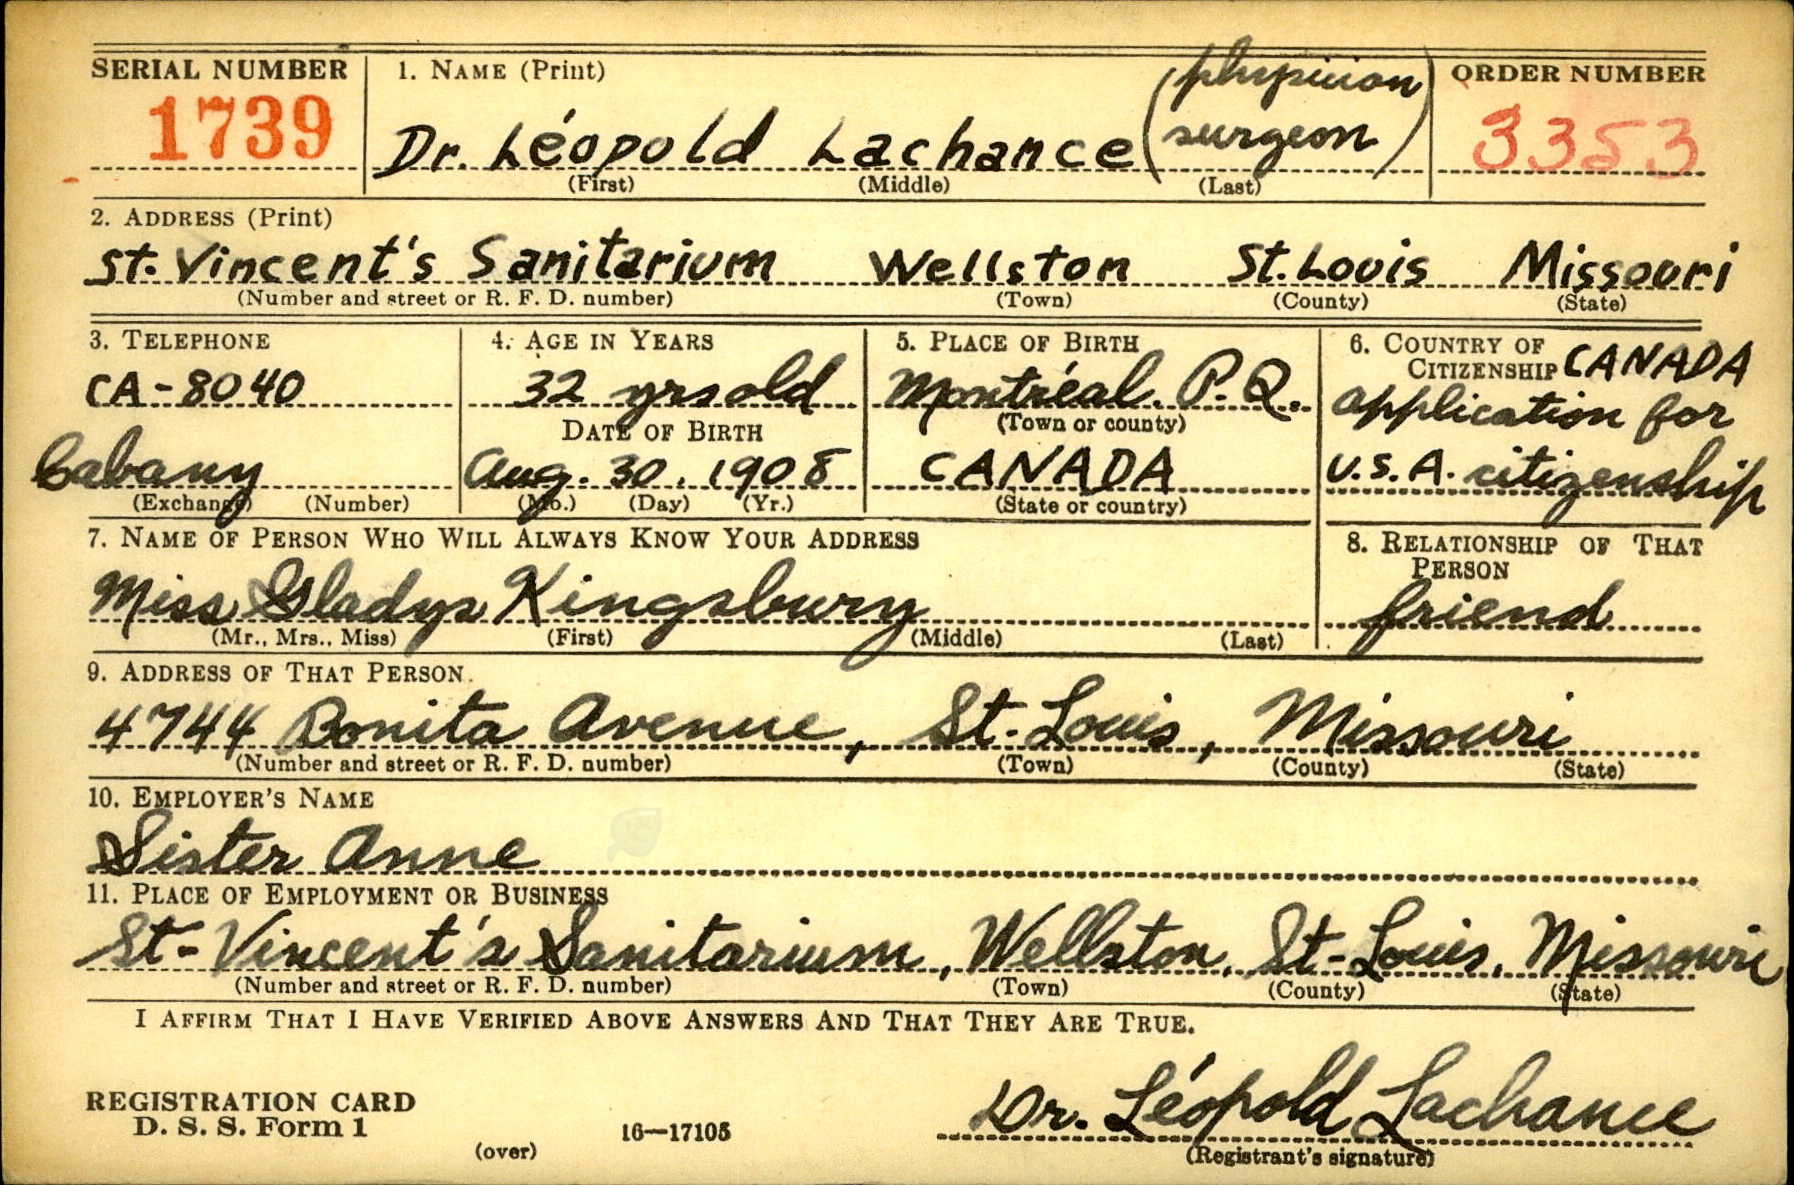 SERIAL NUMBER
1739
1. NAME (Print)
Dr. Léopold Lachance (physician surgeon)
(First) (Middle) (Last)
ORDER NUMBER
3353
2. ADDRESS (Print)
St. Vincent's Sanitarium Wellston St. Louis Missouri
(Number and street or R. F. D. number) (Town) (County) (State)
3. TELEPHONE
CA-8040
Cabany
(Exchange) (Number)
4. AGE IN YEARS
32 yrs old
DATE OF BIRTH
Aug. 30, 1908
(Mo.) (Day) (Yr.)
5. PLACE OF BIRTH
Montréal. P.Q.
(Town or county)
CANADA
(State or country)
6. COUNTRY OF
CITIZENSHIP CANADA
application for
U.S.A. citizenship
7. NAME OF PERSON WHO WILL ALWAYS KNOW YOUR ADDRESS
Miss Gladys Kingsbury
(Mr., Mrs., Miss) (First) (Middle) (Last)
8. RELATIONSHIP OF THAT
PERSON
friend
9. ADDRESS OF THAT PERSON
4744 Bonita Avenue, St. Louis, Missouri
(Number and street or R. F. D. number) (Town) (County) (State)
10. EMPLOYER'S NAME
Sister Anne
11. PLACE OF EMPLOYMENT OR BUSINESS
St-Vincent's Sanitarium, Wellston, St-Louis, Missouri
(Number and street or R. F. D. number) (Town) (County) (State)
I AFFIRM THAT I HAVE VERIFIED ABOVE ANSWERS AND THAT THEY ARE TRUE.
Dr. Léopold Lachance
(Registrant's signature)
REGISTRATION CARD
D. S. S. Form 1
(over)
16—17105